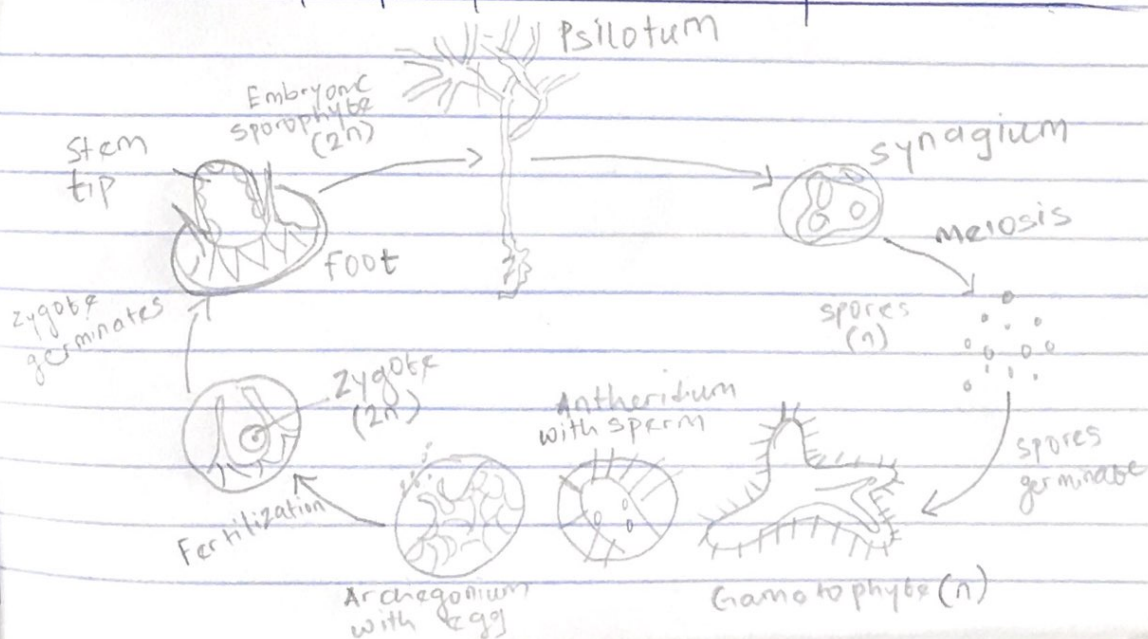 Psilotum
Embryonic
sporophyte
(2n)
Stem
tip
Foot
synagium
meiosis
spores
(n)
spores
germinate
Gamotophyte (n)
Antheridium
with sperm
Archegonium
with Egg
Fertilization
Zygote
(2n)
zygote
germinates